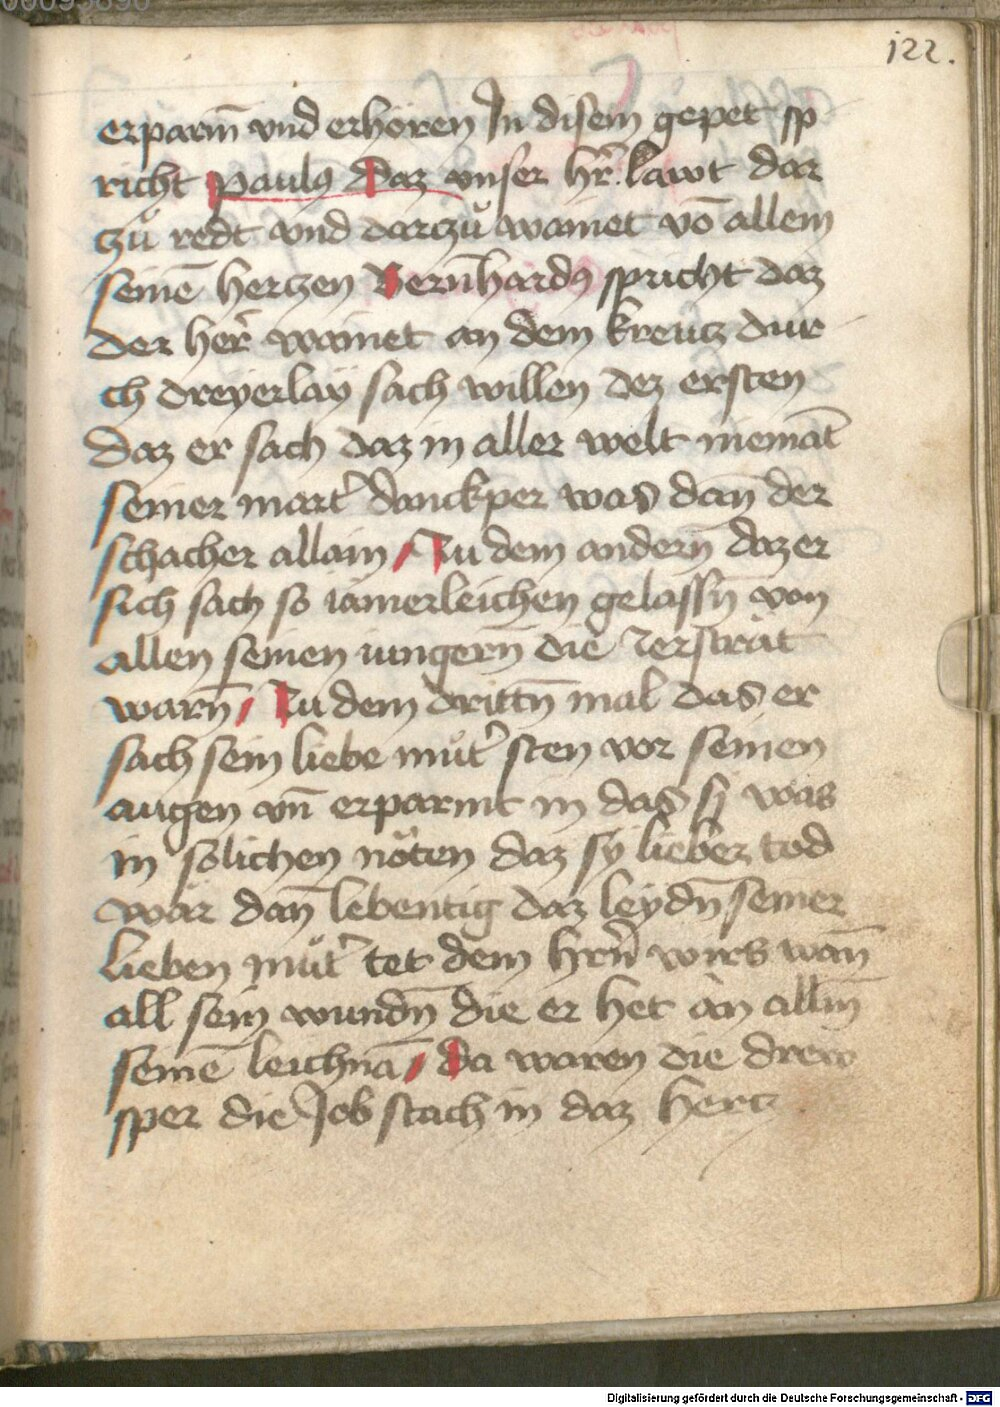 00095890
122.
erparm̄ vnd erhören Jn disem gepet sp
richt Paulꝯ Daz vnser hr̄. lawt dar
czů redt vnd darczů wainet vō allem
seinē herczen Bern̄hardꝯ spricht daz
der her̄ wainet an dem kreucz dur
ch dreyerlaÿ sach willen dez ersten
daz er sach daz in aller welt niemāt
seiner mart̾ danckper was dan̄ der
schacher allain / Zu dem andern̄ daz er
sich sach so iamerleichen gelassn̄ von
allen seinen iungern̄ die zersträt
warn̄ / Zu dem drittn̄ mal das er
sach sein liebe můt̾ sten vor seinen
augen vn̄ erparmt in das sy was
in solichen nöten daz sy lieber tod
wär dan̄ lebentig daz leydn̄ seiner
lieben můt̾ tet dem hrn̄ wirs wan̄
all sein wundn̄ die er het an allm̄
seinē leichnā / Da waren die drew
sper die Job stach in daz hercz
Digitalisierung gefördert durch die Deutsche Forschungsgemeinschaft - DFG